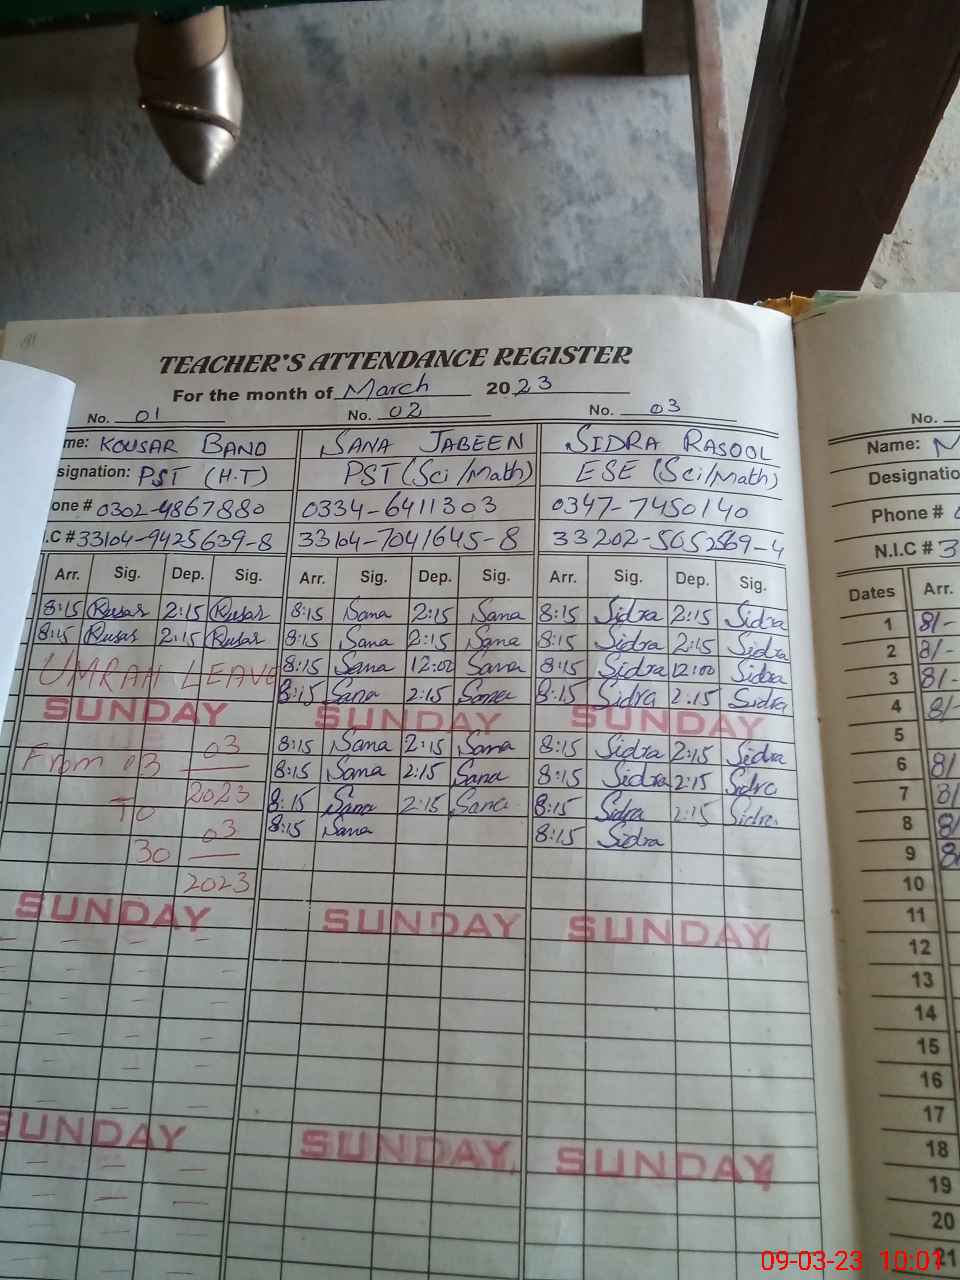 TEACHER'S ATTENDANCE REGISTER
For the month of March 2023
No. 01 No. 02 No. 03 No.
me: KOUSAR BANO SANA JABEEN SIDRA RASOOL Name:
signation: PST (H.T) PST (Sci/Math) ESE (Sci/Math) Designatio
one # 0302-4867880 0334-6411303 0347-7450140 Phone #
.C # 33104-9425639-8 33104-7041645-8 33202-5052569-4 N.I.C # 3
Arr. Sig. Dep. Sig. Arr. Sig. Dep. Sig. Arr. Sig. Dep. Sig. Dates Arr.
8:15 Kusar 2:15 Kusar 8:15 Sana 2:15 Sana 8:15 Sidra 2:15 Sidra 1 8/-
8:15 Kusar 2:15 Kusar 8:15 Sana 2:15 Sana 8:15 Sidra 2:15 Sidra 2 8/-
UMRAH LEAVE 8:15 Sana 12:00 Sana 8:15 Sidra 12:00 Sidra 3 8/-
8:15 Sana 2:15 Sana 8:15 Sidra 2:15 Sidra 4 8/-
SUNDAY SUNDAY SUNDAY 5
From 03 03 8:15 Sana 2:15 Sana 8:15 Sidra 2:15 Sidra 6 8/
2023 8:15 Sana 2:15 Sana 8:15 Sidra 2:15 Sidra 7 8/
TO 8:15 Sana 2:15 Sana 8:15 Sidra 2:15 Sidra 8 8/
30 03 8:15 Sana 8:15 Sidra 9 8
2023 10
SUNDAY SUNDAY SUNDAY 11
12
13
14
15
16
17
SUNDAY SUNDAY SUNDAY 18
19
20
21
09-03-23 10:01